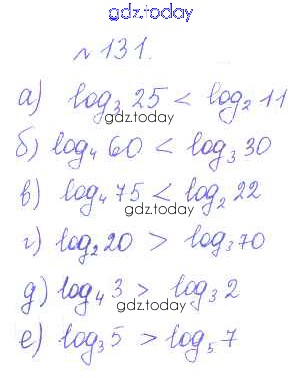 gdz.today
№ 131.
а) log₃ 25 < log₂ 11
gdz.today
б) log₄ 60 < log₃ 30
в) log₄ 75 < log₂ 22
gdz.today
г) log₂ 20 > log₃ 70
д) log₄ 3 > log₃ 2
gdz.today
е) log₃ 5 > log₅ 7